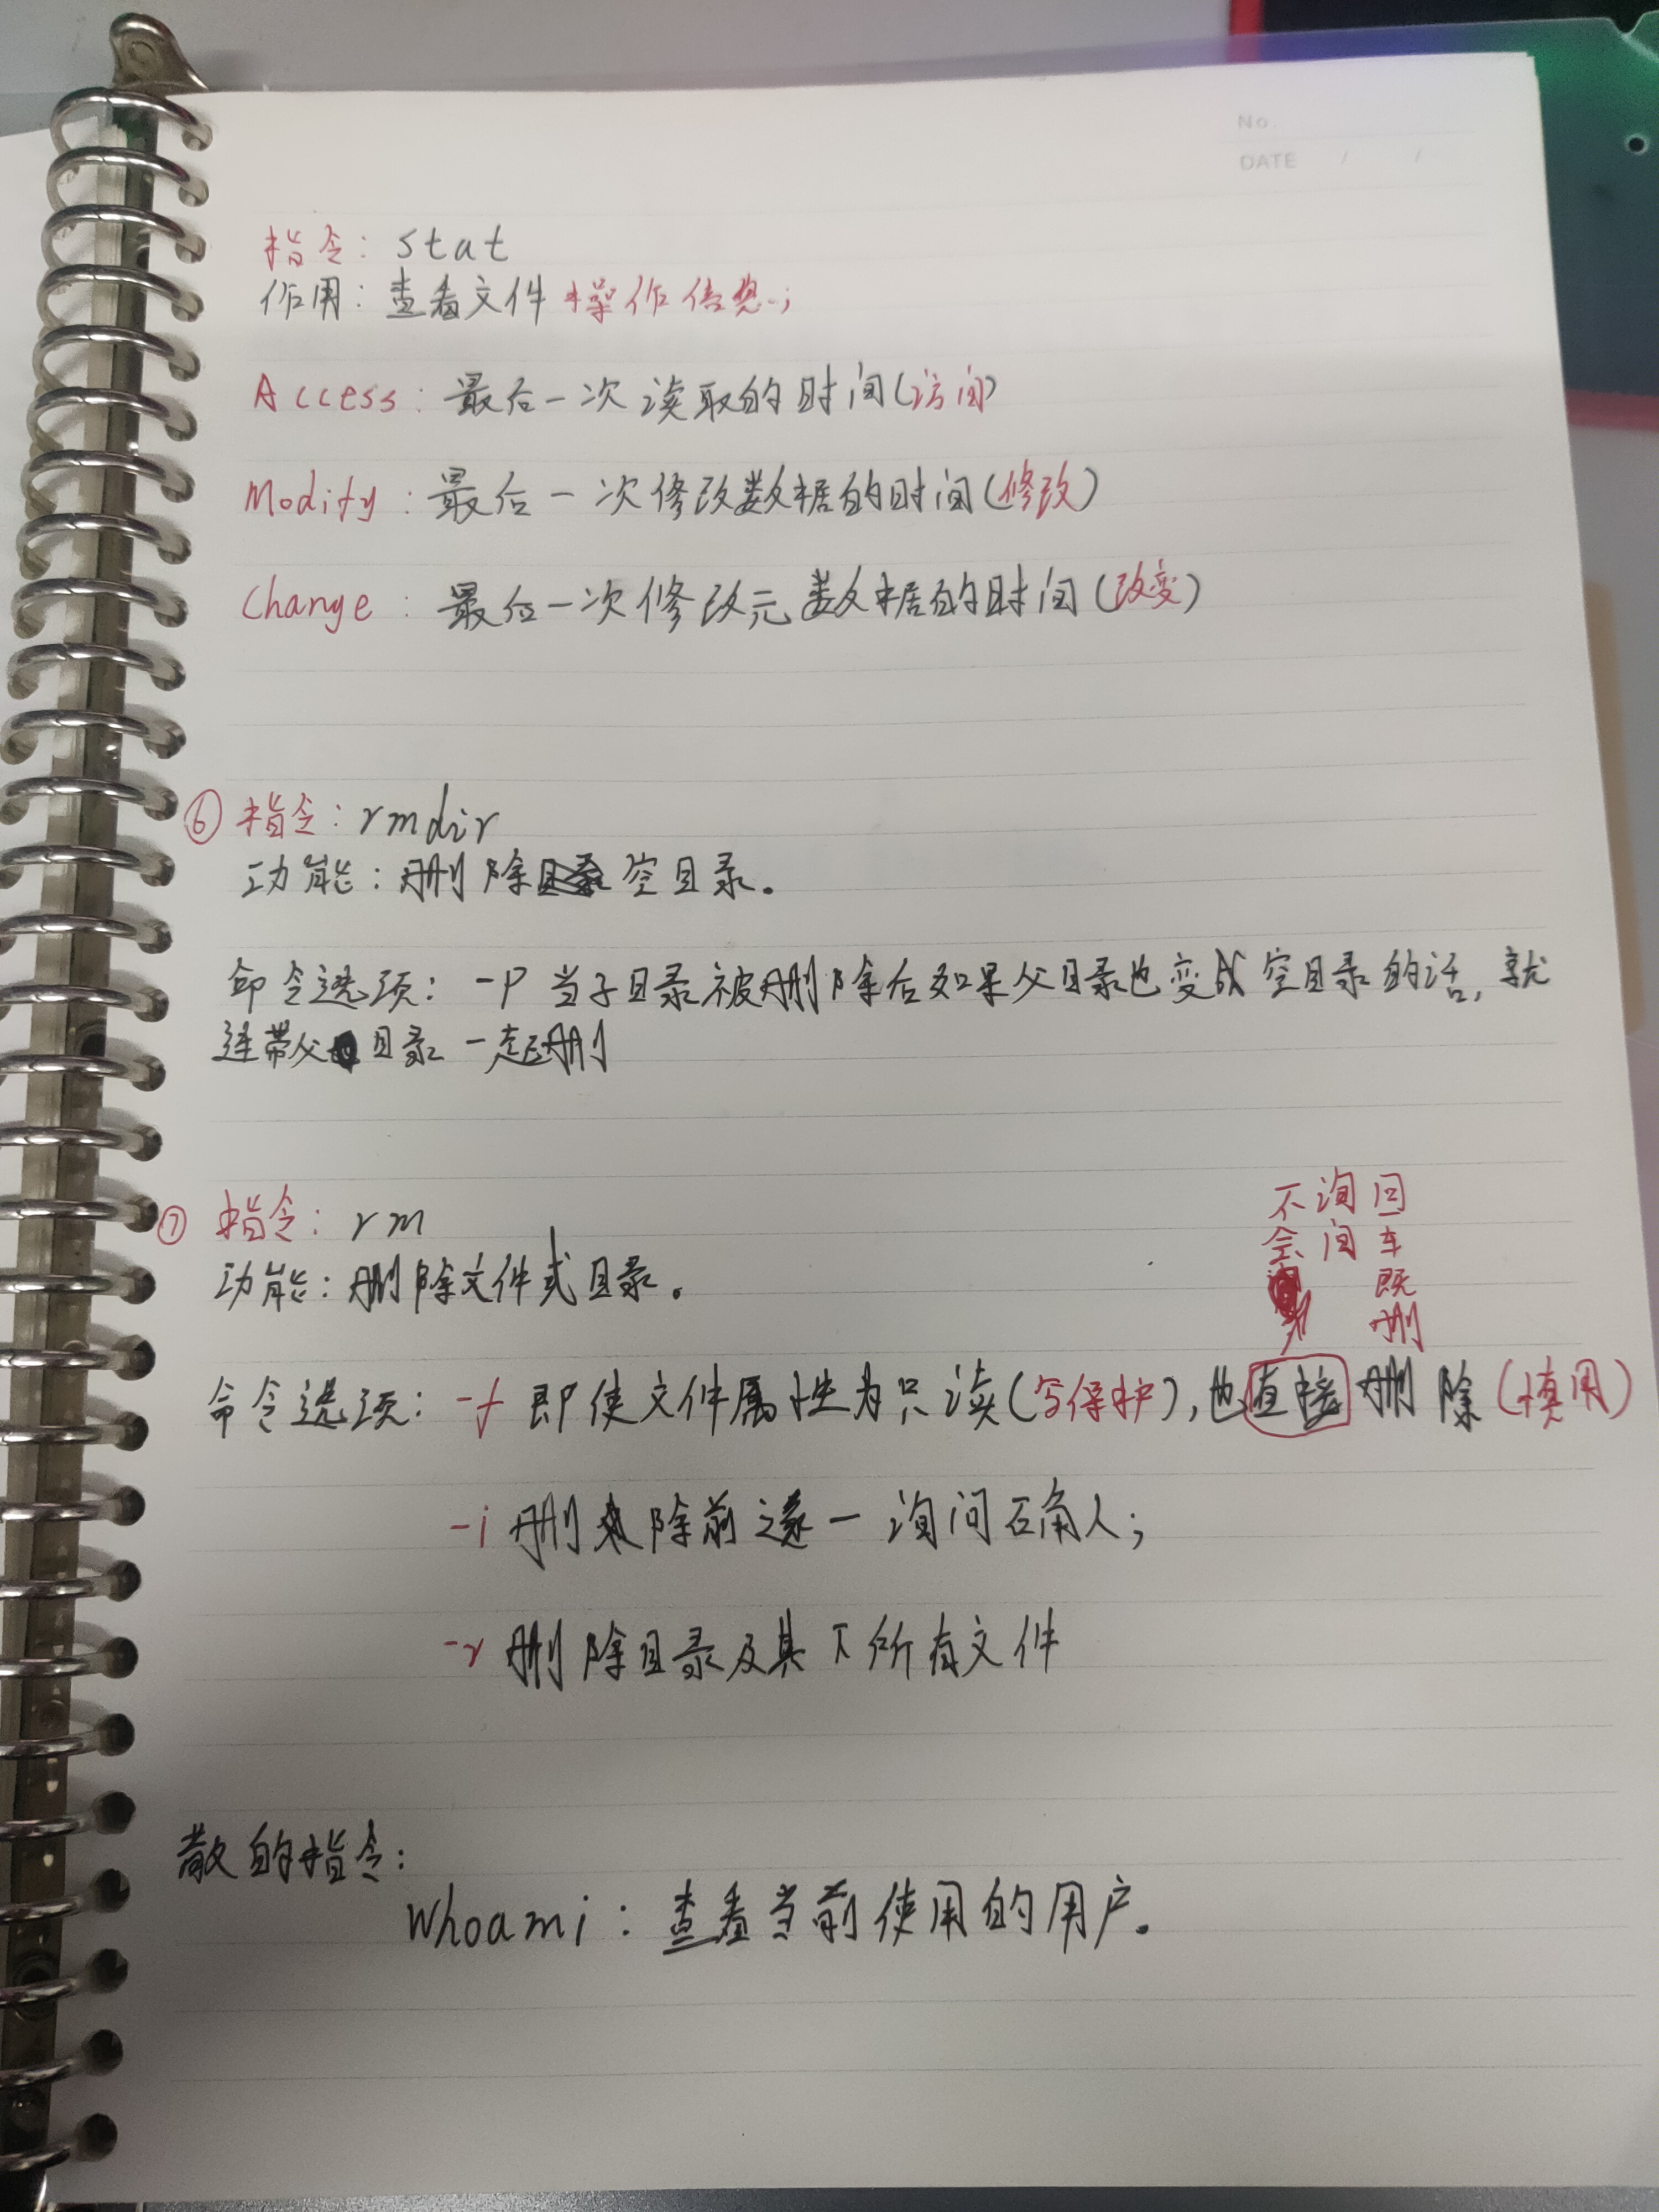 No.
DATE / /
指令: stat
作用: 查看文件操作信息;
Access: 最后一次读取的时间(访问)
Modify: 最后一次修改数据的时间(修改)
Change: 最后一次修改元数据的时间(改变)
⑥ 指令: rmdir
功能: 删除空目录。
命令选项: -P 当子目录被删除后如果父目录也变成空目录的话, 就
连带父目录一起删
⑦ 指令: rm
功能: 删除文件或目录。
不会询问回车既删
命令选项: -f 即使文件属性为只读(写保护), 也直接删除(慎用)
-i 删除前逐一询问确认;
-r 删除目录及其下所有文件
散的指令:
Whoami: 查看当前使用的用户。